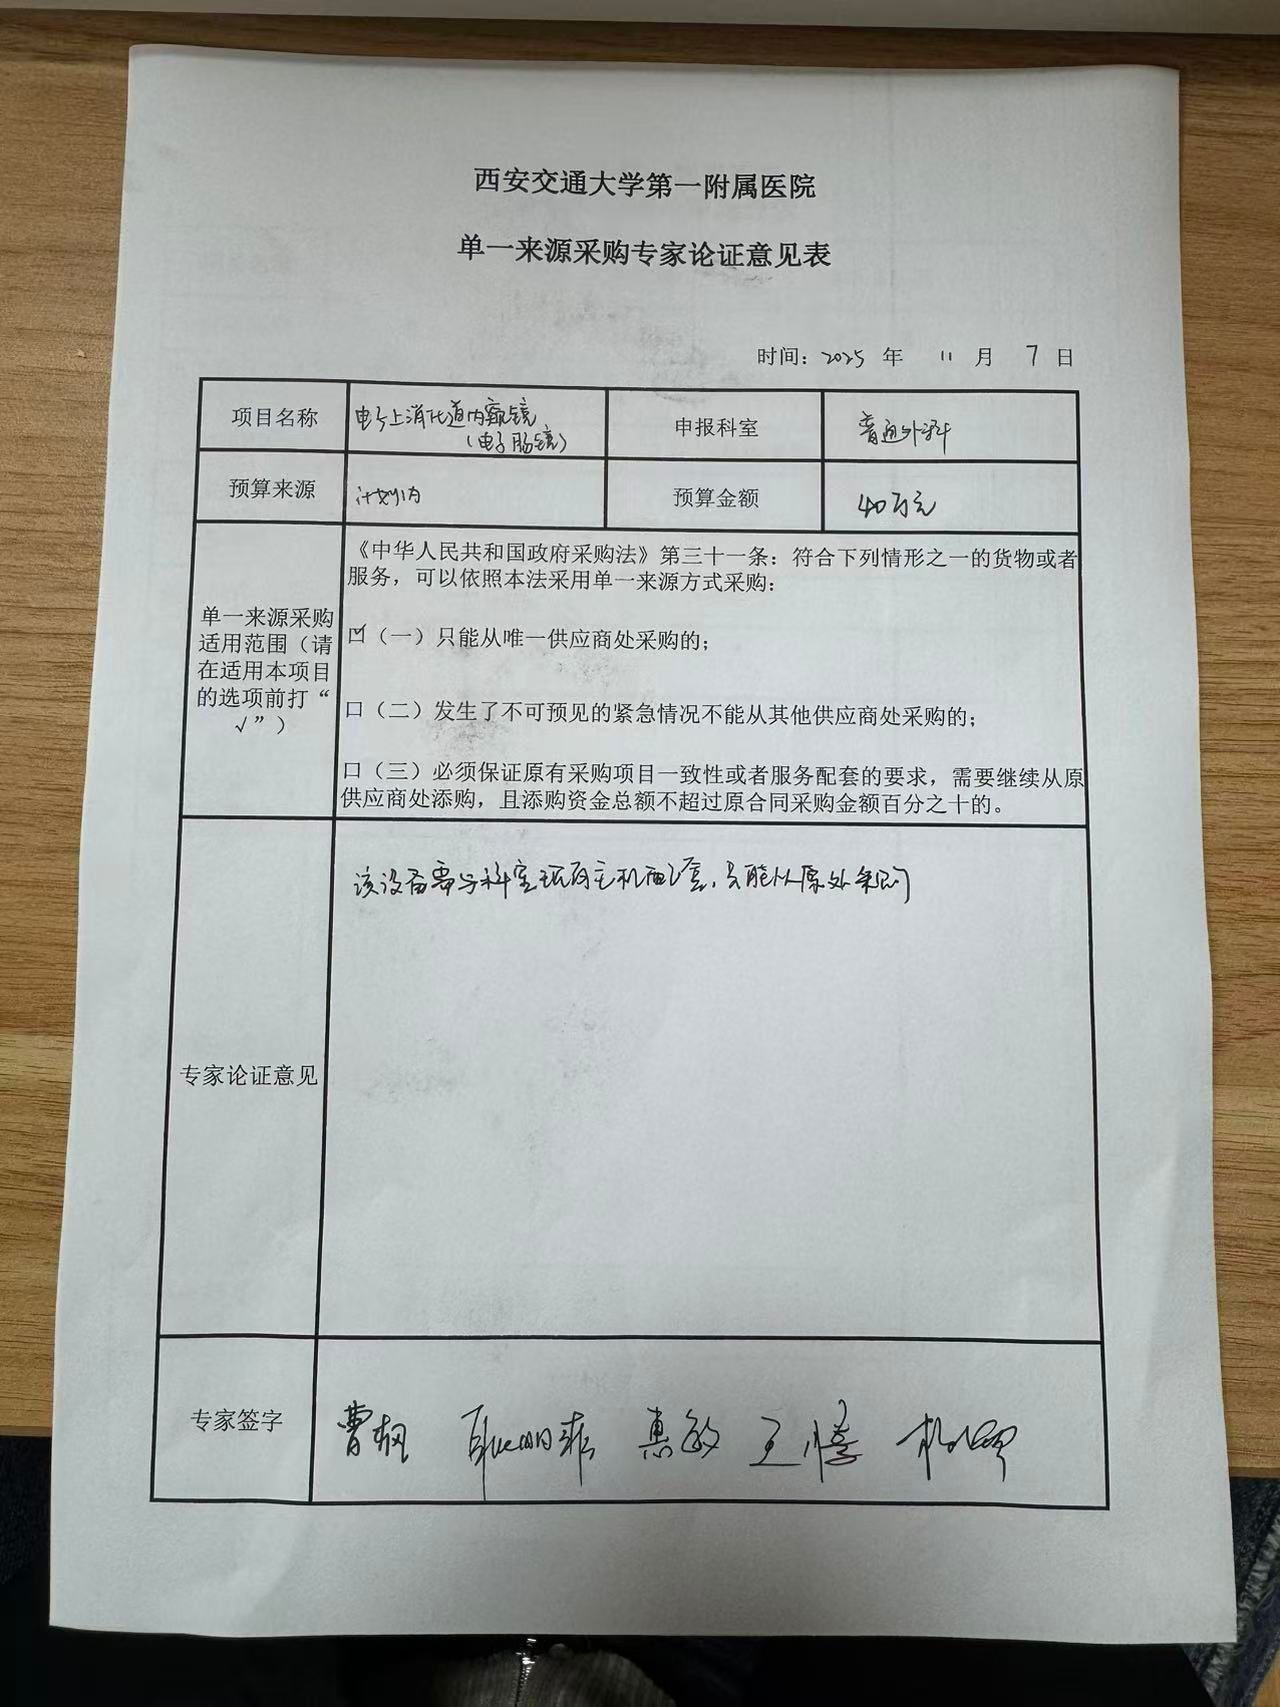 西安交通大学第一附属医院
单一来源采购专家论证意见表
时间：2025 年 11 月 7 日
项目名称 电子上消化道内窥镜 申报科室 普通外科
（电子肠镜）
预算来源 计划内 预算金额 40万元
《中华人民共和国政府采购法》第三十一条：符合下列情形之一的货物或者
服务，可以依照本法采用单一来源方式采购：
单一来源采购
适用范围（请
在适用本项目
的选项前打“
√”）
☑（一）只能从唯一供应商处采购的；
口（二）发生了不可预见的紧急情况不能从其他供应商处采购的；
口（三）必须保证原有采购项目一致性或者服务配套的要求，需要继续从原
供应商处添购，且添购资金总额不超过原合同采购金额百分之十的。
专家论证意见
该设备需与科室现有主机配套，只能从原处采购
专家签字
曹枫 惠敏 王